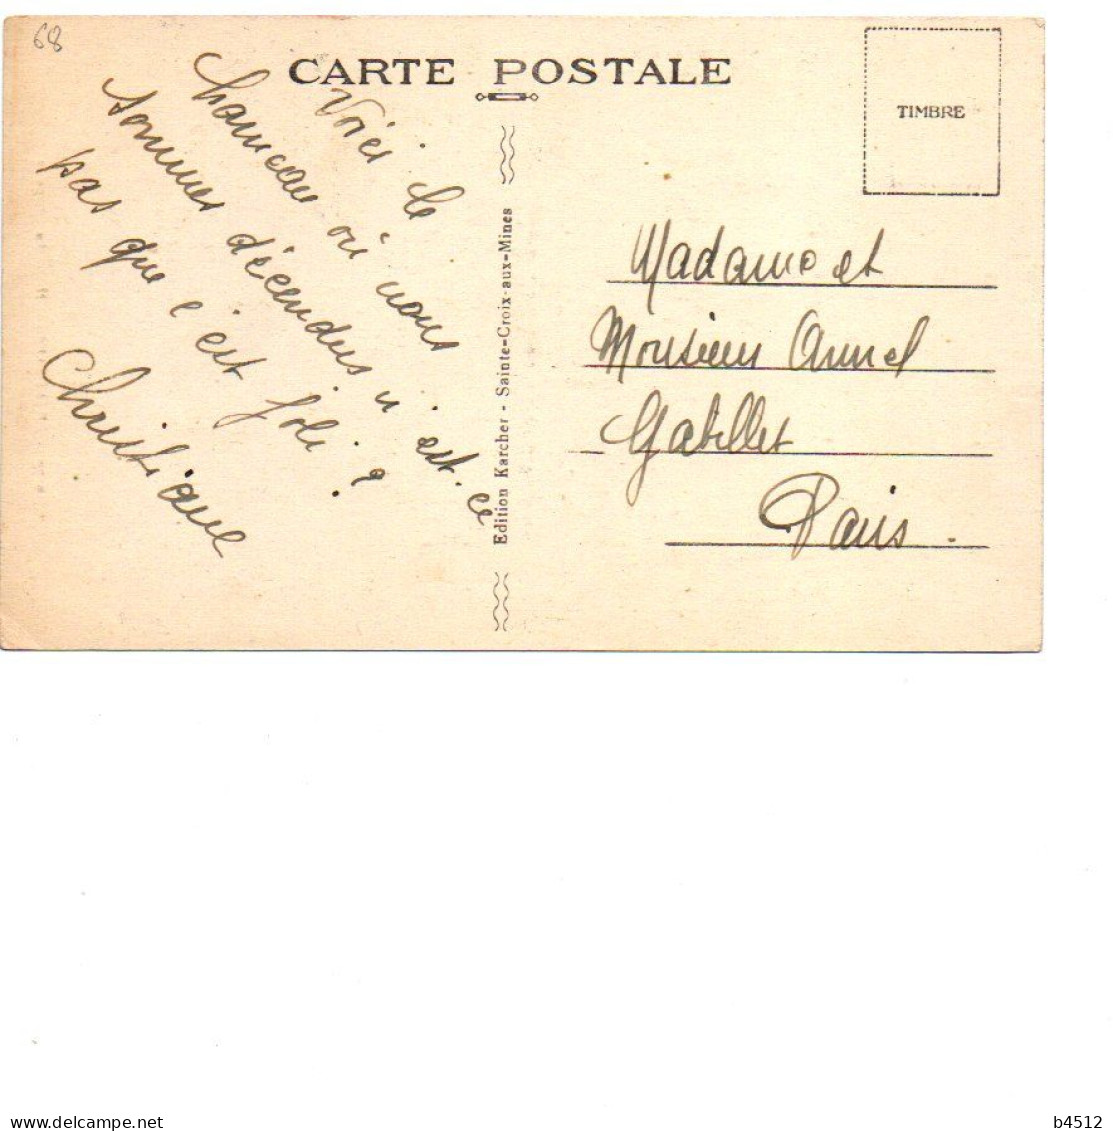 68
CARTE POSTALE
TIMBRE
Voici le
hameau où nous
sommes décendus n'est-ce
pas que c'est joli ?
Christiane
Edition Karcher - Sainte-Croix-aux-Mines
Madame et
Monsieur
Gabillet
Paris.
www.delcampe.net
b4512